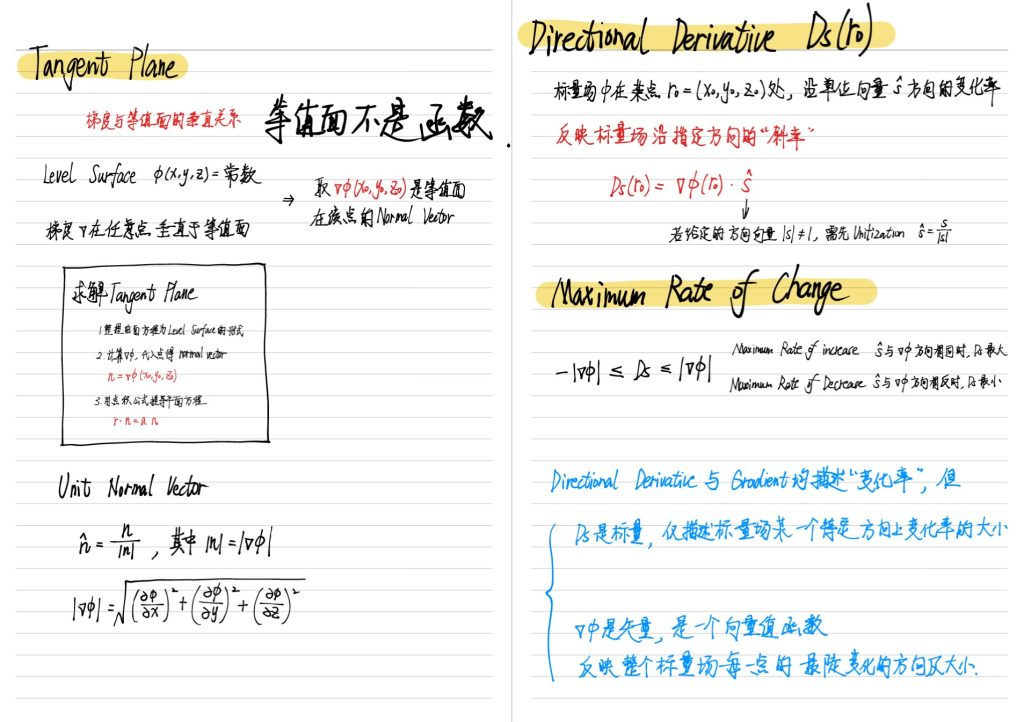 Tangent Plane
梯度与等值面的垂直关系
等值面不是函数.
Level Surface φ(x,y,z)=常数
⇒ 取∇φ(x₀,y₀,z₀)是等值面
在该点的Normal Vector
梯度∇在任意点垂直于等值面
求解Tangent Plane
1.整理曲面方程为Level Surface的形式
2.计算∇φ,代入点得normal vector
n=∇φ(x₀,y₀,z₀)
3.用点积公式推导平面方程
r·n=a·n
Unit Normal Vector
n̂=n/|n|,其中|n|=|∇φ|
|∇φ|=√((∂φ/∂x)²+(∂φ/∂y)²+(∂φ/∂z)²)
Directional Derivative Ds(r₀)
标量场中在某点r₀=(x₀,y₀,z₀)处,沿单位向量ŝ方向的变化率
反映标量场沿指定方向的“斜率”
Ds(r₀)=∇φ(r₀)·ŝ
↓
若给定的方向向量|s|≠1,需先Unitization ŝ=s/|s|
Maximum Rate of Change
-|∇φ|≤Ds≤|∇φ|
Maximum Rate of increase ŝ与∇φ方向相同时,Ds最大
Maximum Rate of Decrease ŝ与∇φ方向相反时,Ds最小
Directional Derivative与Gradient均描述“变化率”,但
Ds是标量,仅描述标量场某一个特定方向上变化率的大小
∇φ是矢量,是一个向量值函数
反映整个标量场每一点的最陡变化的方向及大小.